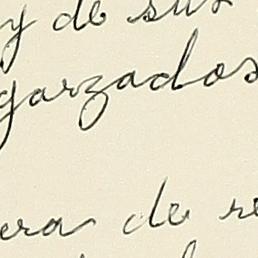 y de sus
garzados
era de re